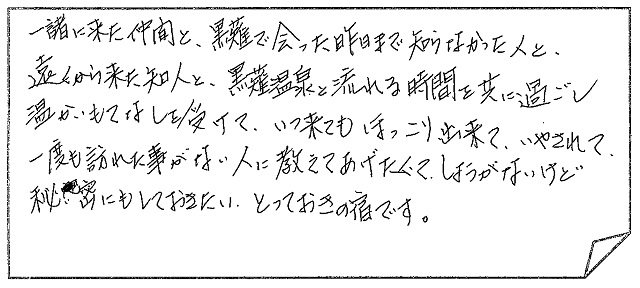 一諸に来た仲間と、黒薙で会った昨日まで知らなかった人と、
遠くから来た知人と、黒薙温泉と流れる時間を共に過ごし
温かいもてなしを受けて、いつ来てもほっこり出来て、いやされて、
一度も訪れた事がない人に教えてあげたくて、しょうがないけど
秘密にもしておきたい、とっておきの宿です。